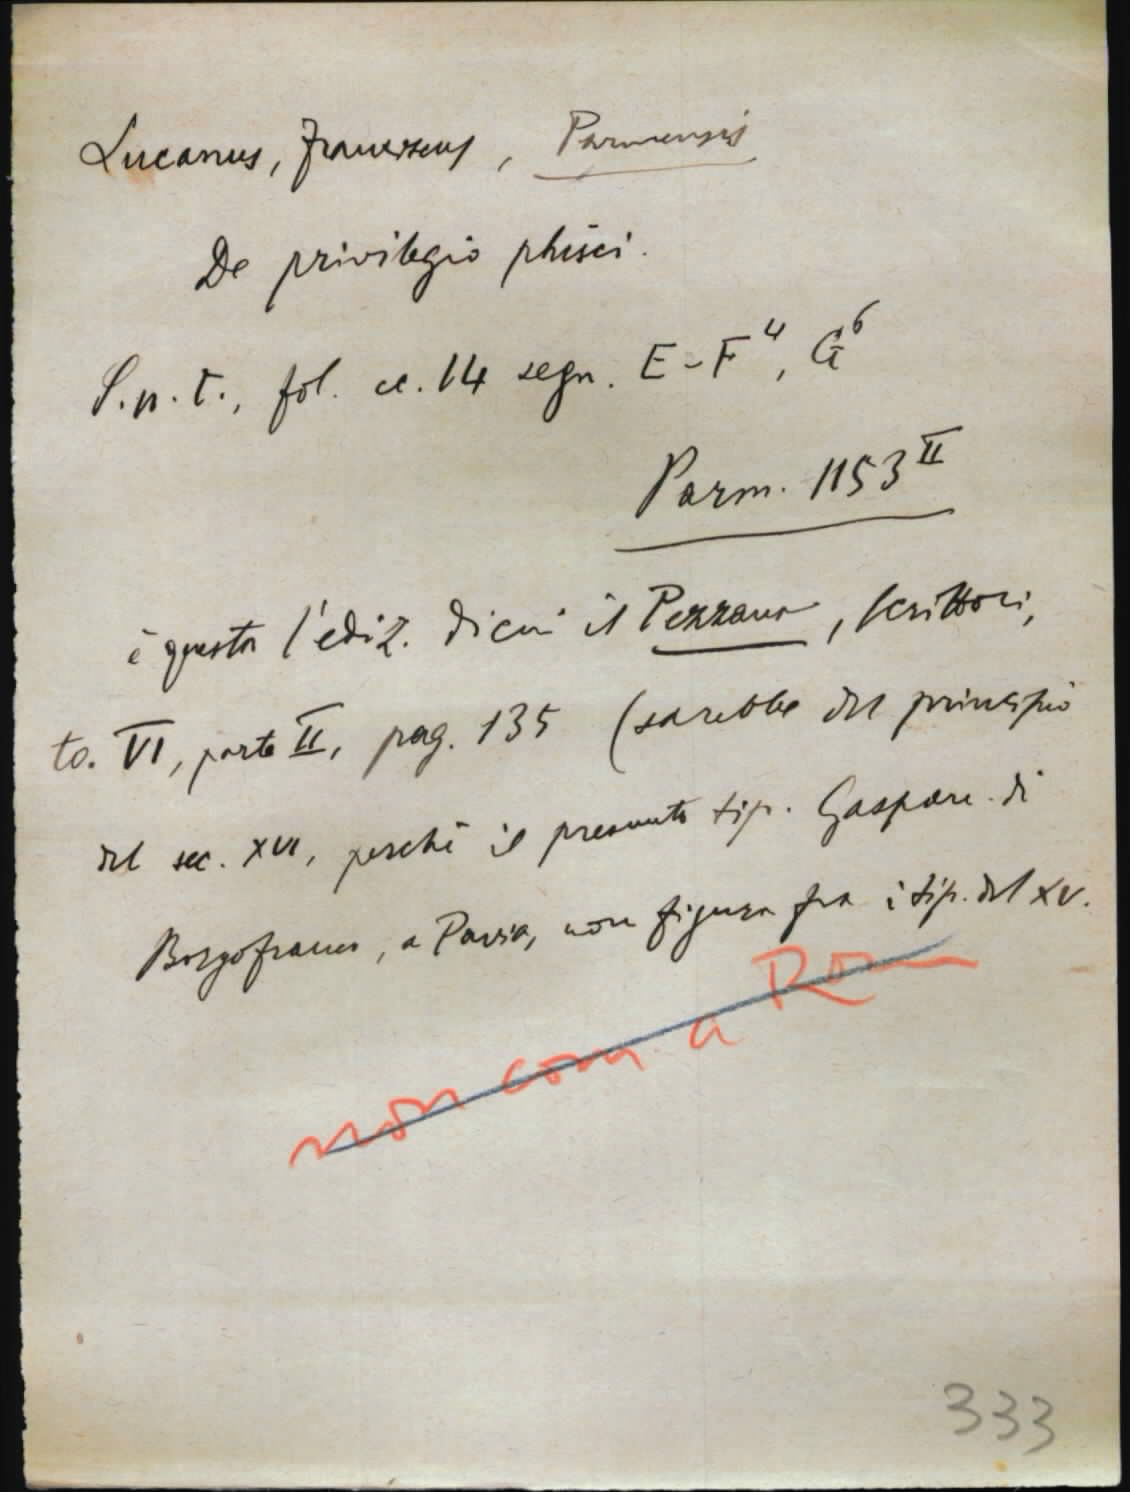 Lucanus, Franciscus, Parmensis
De privilegio phisci.
S.n.t., fol. cc. 14 segn. E-F⁴, G⁶
Parm. 1153 II
è questa l'ediz. di cui il Pezzana, Scrittori,
to. VI, parte II, pag. 135 (sarebbe del principio
del sec. XVI, perchè il presunto tip. Gaspare di
Borgofranco, a Pavia, non figura fra i tip. del XV.
non com. a Rom
333